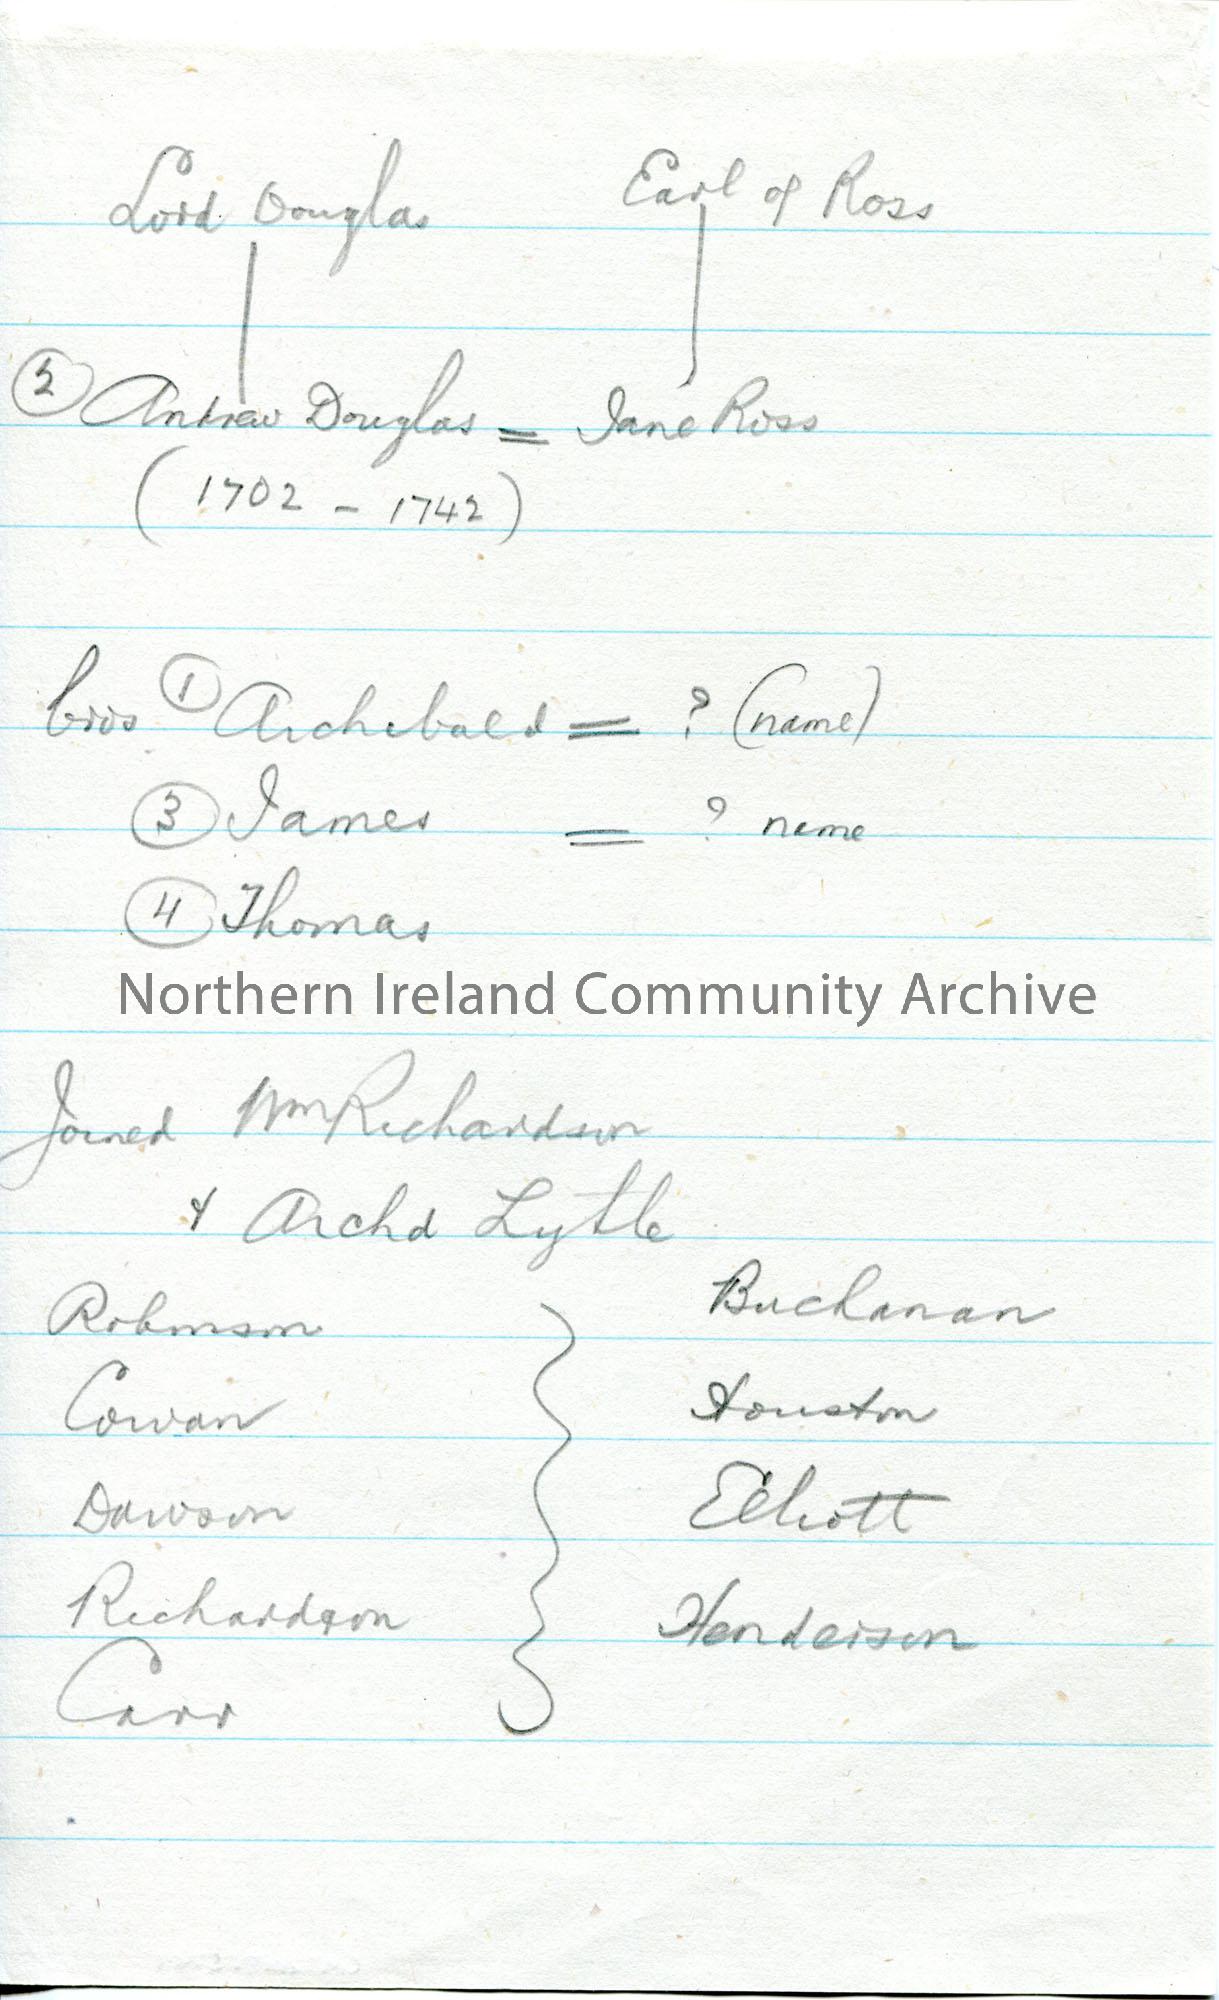 Lord Douglas Earl of Ross
② Andrew Douglas = Jane Ross
(1702 - 1742)
bros ① Archibald = ? (name)
③ James = ? name
④ Thomas
Northern Ireland Community Archive
Joined Wm Richardson
& Archd Lytle
Robinson Buchanan
Cowan Houston
Dawson Elliott
Richardson Henderson
Carr